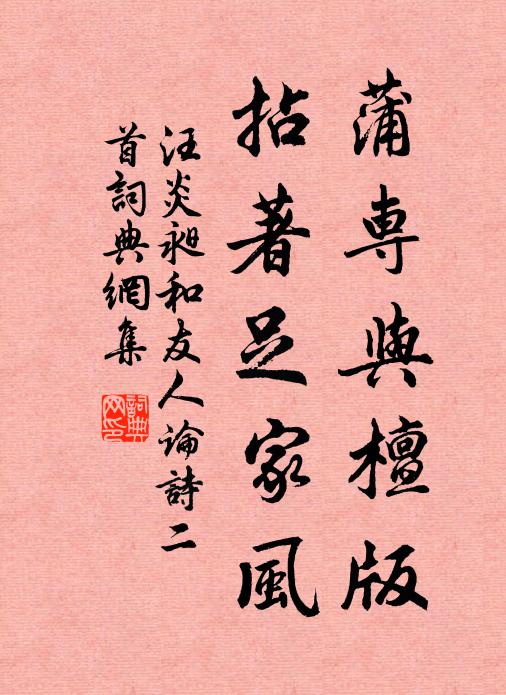 蒲専與檀版
拈著足家風
汪炎昶和友人論詩二
首詞典網集
詞典網印